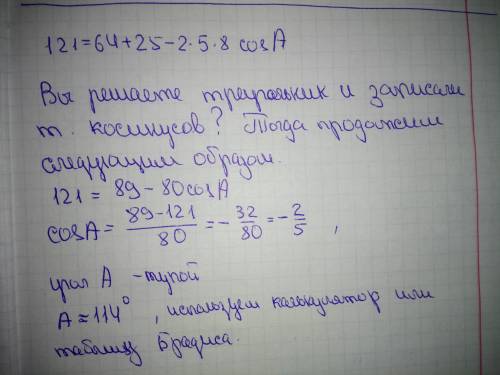 121=64+25-2·5·8 cosA
Вы решаете треугольник и записали
т. косинусов? Тогда продолжим
следующим образом.
121 = 89-80cosA
cosA = \frac{89-121}{80} = -\frac{32}{80} = -\frac{2}{5} ,
угол А - тупой
A ≈ 114° , используем калькулятор или
таблицу Брадиса.